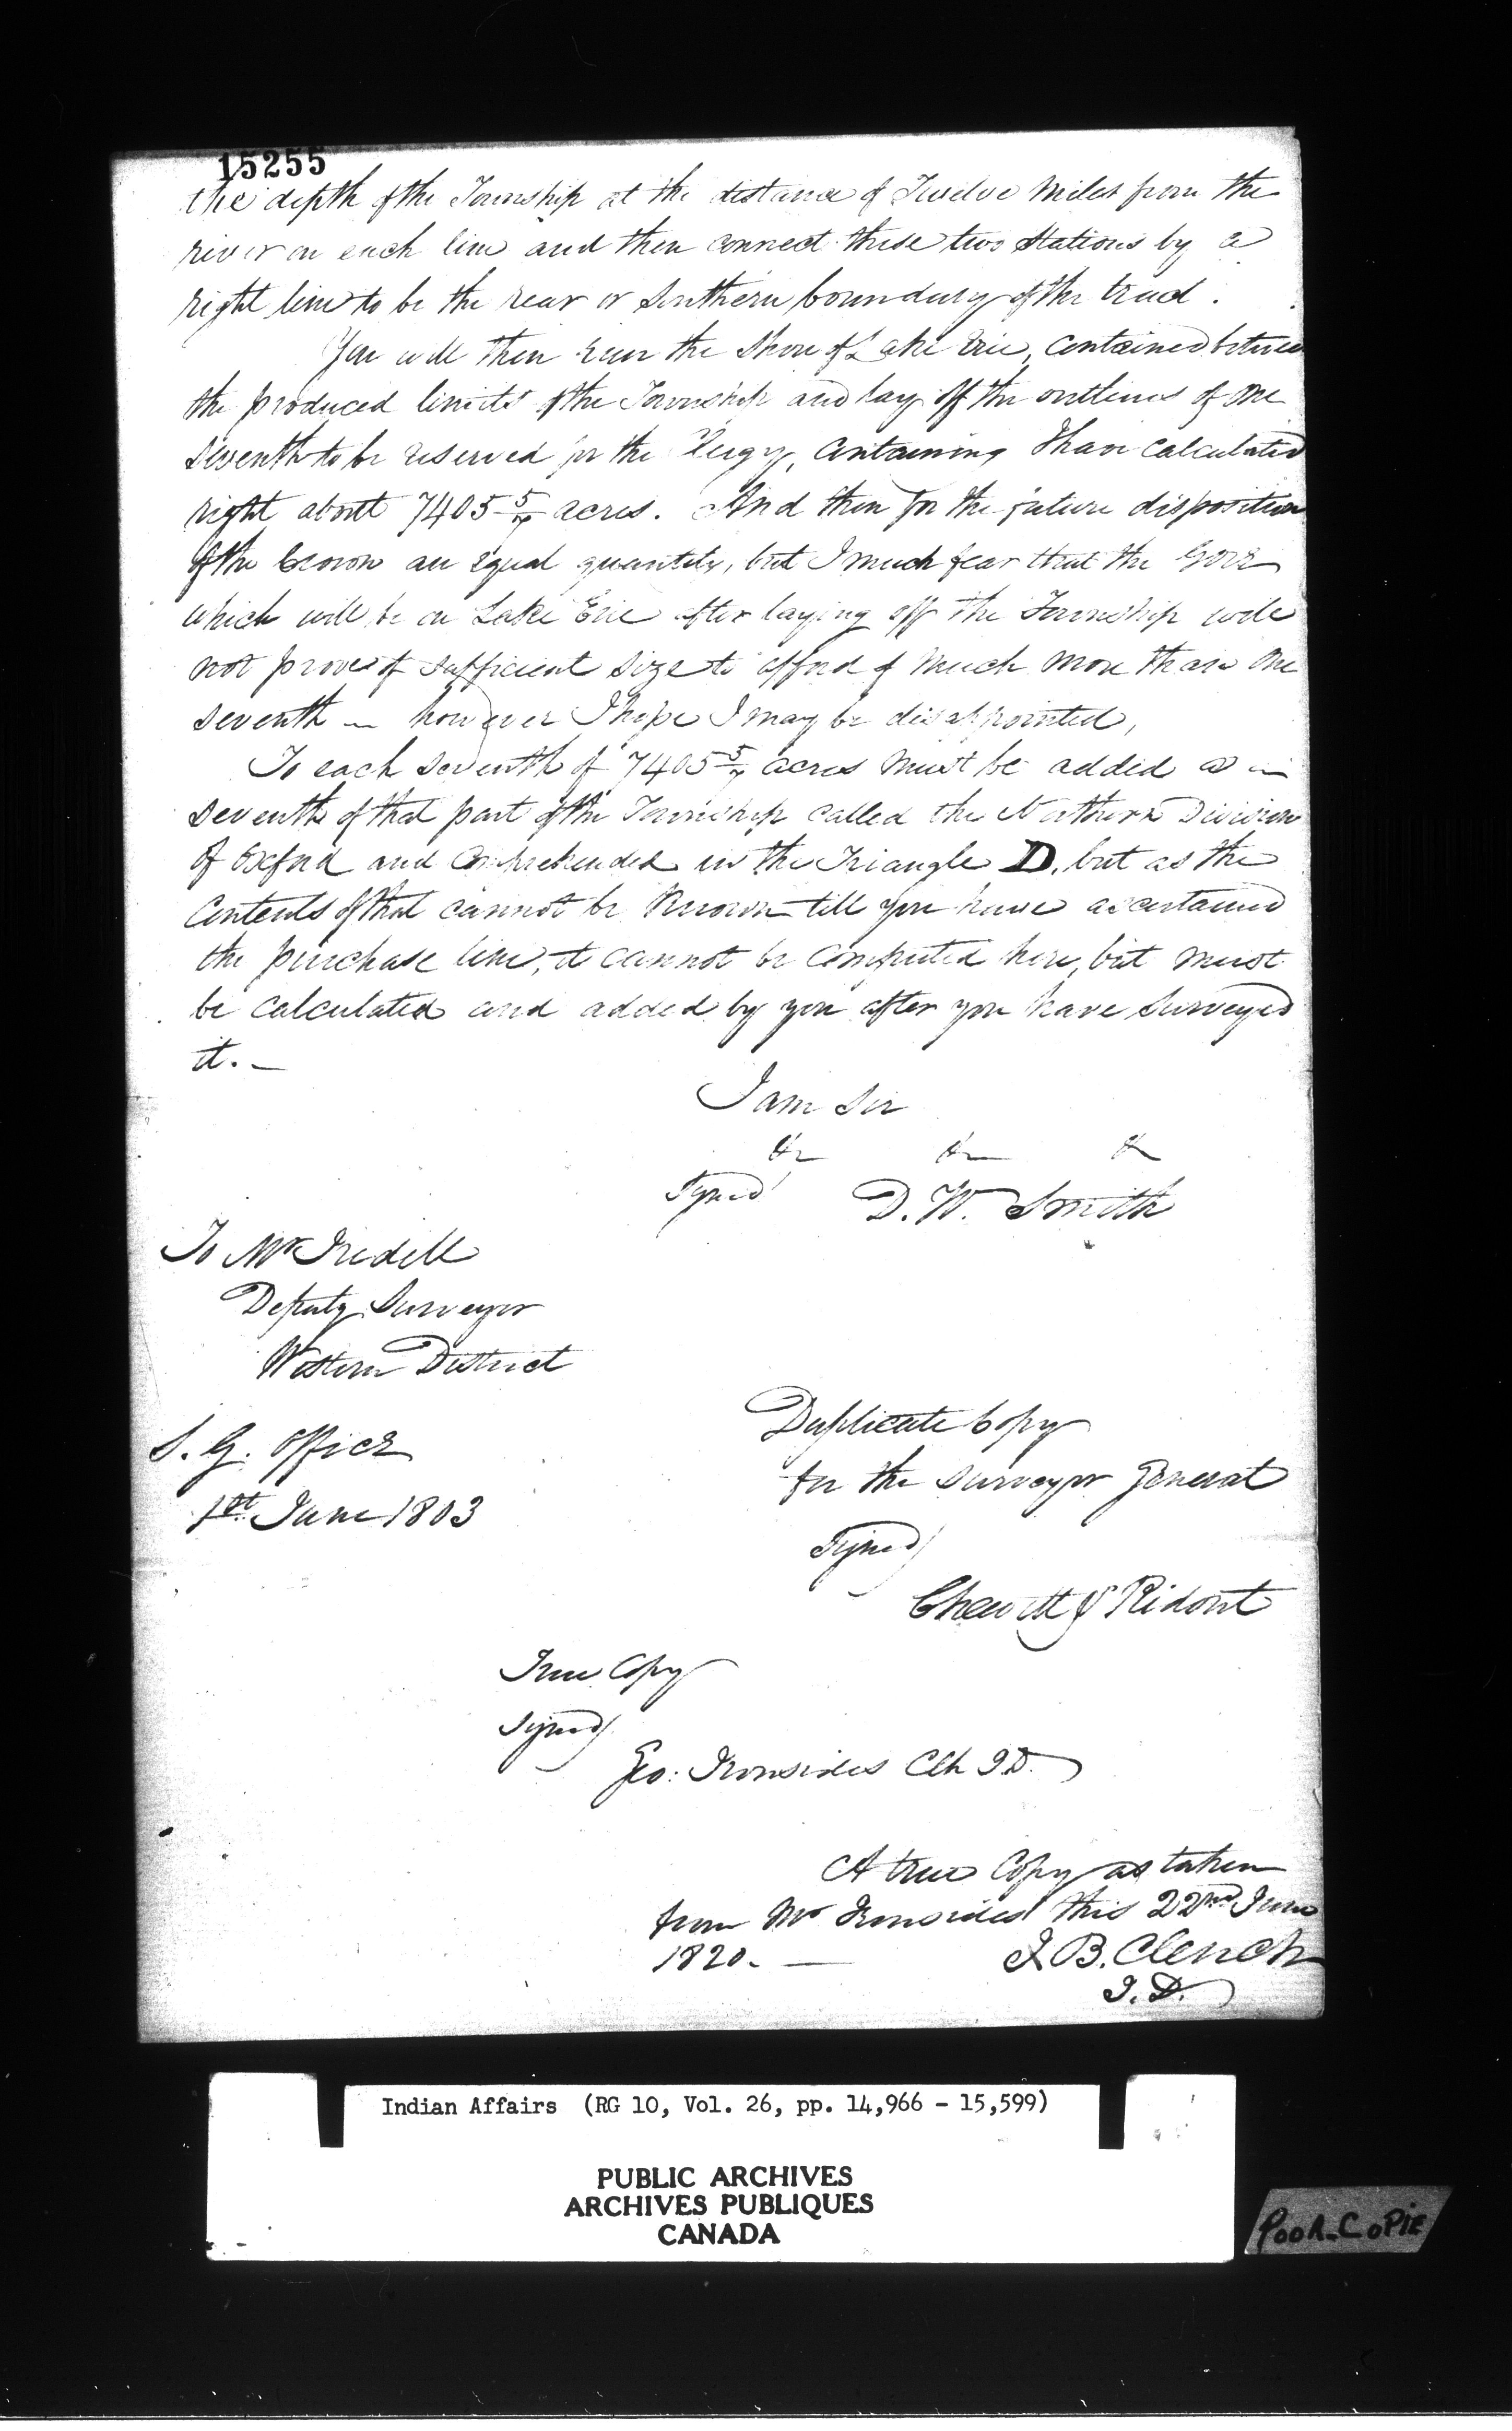 15255
the depth of the Township at the distance of Twelve Miles from the
river on each line and then connect these two Stations by a
right line to be the rear or Southern boundary of the tract.
You will then run the Shore of Lake Erie, contained between
the produced limits of the Township and lay off the outlines of one
seventh to be reserved for the Clergy, containing I have calculated
right about 7405 5/7 acres. And then for the future disposition
of the Crown an equal quantity, but I much fear that the Gore
which will be on Lake Erie after laying off the Township will
not prove of sufficient size to afford of much more than one
seventh — however I hope I may be disappointed,
To each seventh of 7405 5/7 acres must be added a
seventh of that part of the Township called the Northern Division
of Oxford and comprehended in the Triangle D, but as the
Contents of that cannot be known till you have ascertained
the purchase line, it cannot be computed here, but must
be calculated and added by you after you have Surveyed
it. —
I am Sir
&c &c &c
Signed D. W. Smith
To Mr Iredell
Deputy Surveyor
Western District
S. G. Office
1st June 1803
Duplicate Copy
for the Surveyor General
Signed/
Chewett & Ridout
True Copy
Signed/
Geo: Ironsides Clk I.D.
A true Copy as taken
from Mr Ironsides this 22nd June
1820. — J. B. Clench
I. D.
Indian Affairs (RG 10, Vol. 26, pp. 14,966 - 15,599)
PUBLIC ARCHIVES
ARCHIVES PUBLIQUES
CANADA
POOR COPIE